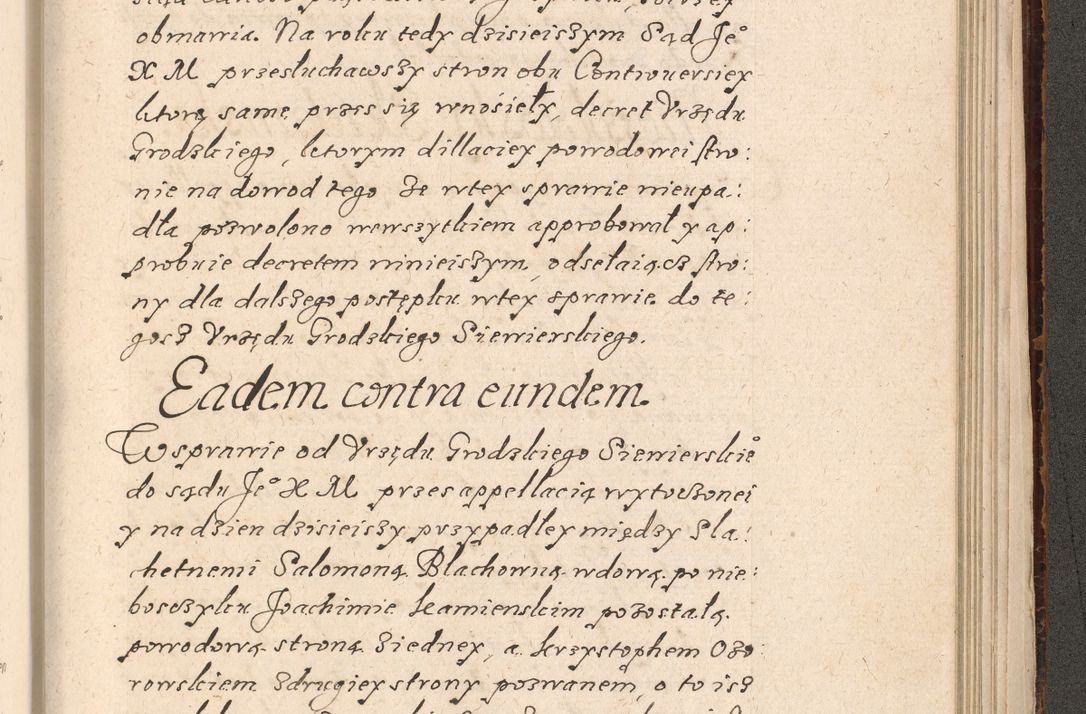 obmawia. Na roku tedy dzisieiszym Sąd Je°
X M przesłuchawszy stron obu Controuersiey
ktorę samę przes się wnosieły, decret Vrzędu
Grodzkiego, ktorym dillaciey powodowei stro:
nie na dowod tego że wtey sprawie nieupa:
dła pozwolono wewszytkiem approbował y ap:
probuie decretem ninieiszym, odsełaiącz stro:
ny dla dalszego postępku wtey sprawie do te:
gosz Vrzędu Grodzkiego Siewierskiego.
Eadem contra eundem
W sprawie od Vrzędu Grodzkiego Siewierskie°
do sądu Je° X M przes appellacią wytoczonei
y na dzien dzisieiszy przypadłey między Sla:
chetnemi Salomoną Blachowną wdową po nie:
bosczyku Joachimie Kamienskim pozostałą
powodową stroną ziedney, a Krzysztophem Ożo:
rowskiem zdrugiey strony pozwanem, o to isz